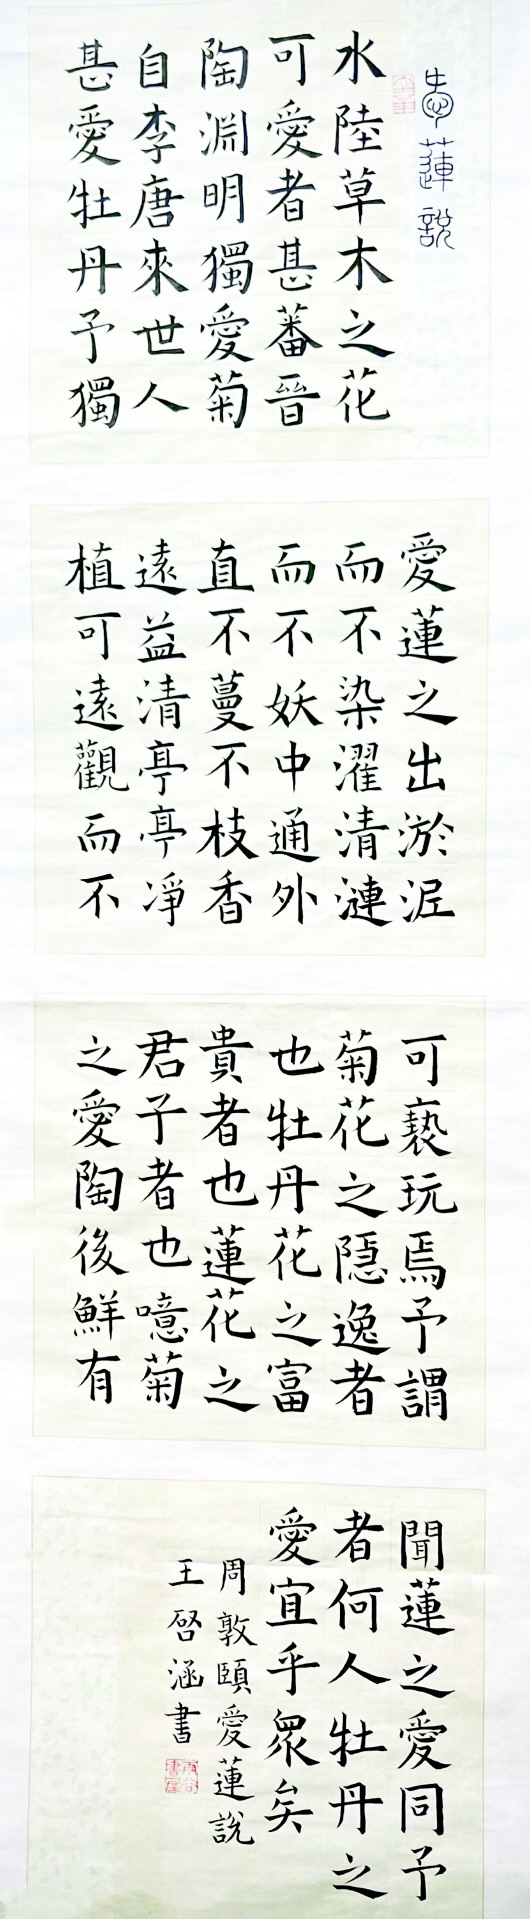 愛蓮說
水陸草木之花
可愛者甚蕃晉
陶淵明獨愛菊
自李唐來世人
甚愛牡丹予獨
愛蓮之出淤泥
而不染濯清漣
而不妖中通外
直不蔓不枝香
遠益清亭亭凈
植可遠觀而不
可褻玩焉予謂
菊花之隱逸者
也牡丹花之富
貴者也蓮花之
君子者也噫菊
之愛陶後鮮有
聞蓮之愛同予
者何人牡丹之
愛宜乎眾矣
周敦頤愛蓮說
王啓涵書